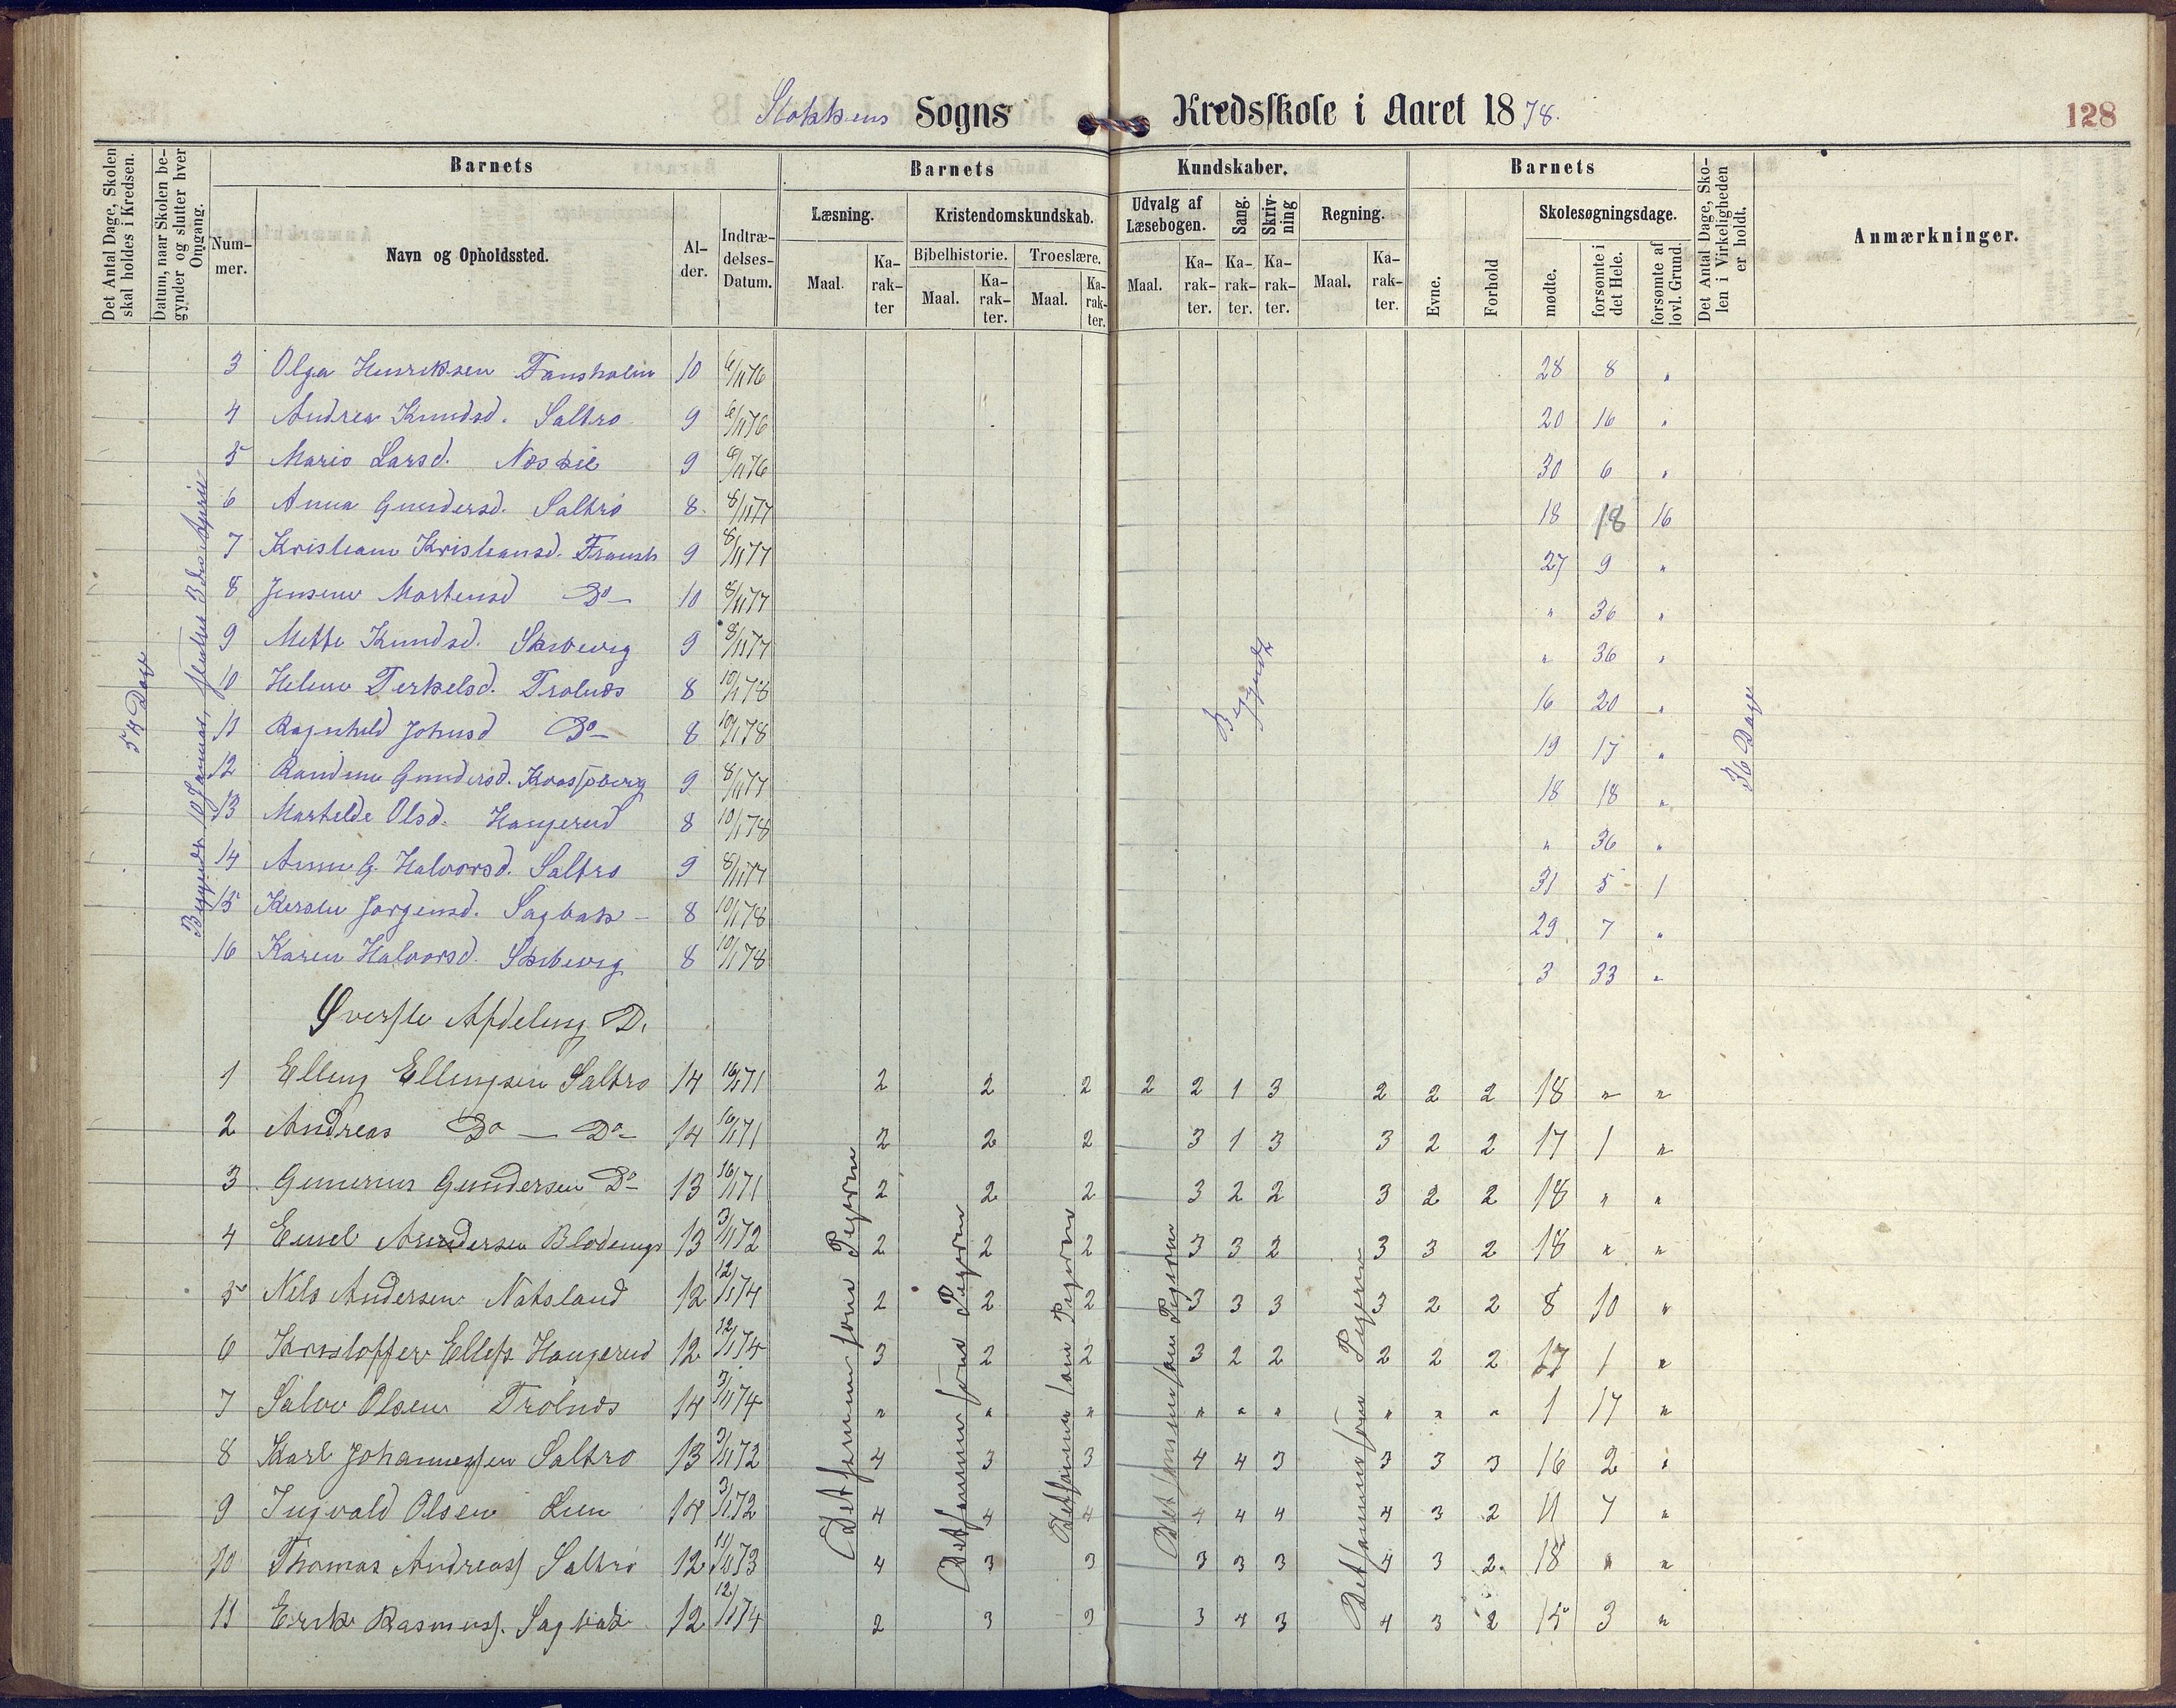 Stokkens Sogns Kredsskole i Aaret 1878.
128
Det Antal Dage, Skolen skal holdes i Kredsen.
Datum, naar Skolen begynder og slutter hver Omgang.
Barnets
Nummer.
Navn og Opholdssted.
Alder.
Indtrædelses-Datum.
Barnets Kundskaber.
Læsning.
Maal.
Karakter
Kristendomskundskab.
Bibelhistorie.
Maal.
Karakter.
Troeslære.
Maal.
Karakter.
Udvalg af Læsebogen.
Maal.
Karakter.
Sang.
Karakter.
Skrivning
Karakter.
Regning.
Maal.
Karakter.
Barnets
Evne.
Forhold
Skolesøgningsdage.
mødte.
forsømte i det Hele.
forsømte af lovl. Grund.
Det Antal Dage, Skolen i Virkeligheden er holdt.
Anmærkninger.
54 Dage
Begyndt 10 Januar, sluttet 3die April
3 Olga Henriksen 10 6/11 76 28 8 "
4 Andrea Knudsd. Saltrø 9 6/11 76 20 16 "
5 Marie Larsd. Næskil 9 6/11 76 30 6 "
6 Anna Gundersd. Saltrø 8 8/11 77 18 18 16
7 Kristiane Kristiansd. 9 8/11 77 27 9 "
8 Jensine Mortensd Do 10 8/11 77 " 36 "
9 Mette Knudsd. Skibevig 9 8/11 77 " 36 "
10 Helene Terkelsd. Trolnæs 8 10/1 78 16 20 "
11 Ragnhild Johnsd Do 8 10/1 78 19 17 "
12 Randine Gundersd. 9 8/11 77 18 18 "
13 Martelde Olsd. Haugerud 8 10/1 78 " 36 "
14 Anne G. Halvorsd. Saltrø 9 8/11 77 31 5 1
15 Kirsten Jørgensd. Sagbak 8 10/1 78 29 7 "
16 Karen Halvorsd. Skibevig 8 10/1 78 3 33 "
Begyndt
36 Dage
Øverste Afdeling D.
1 Elling Ellingsen Saltrø 14 16/1 71 2 2 2 2 2 1 3 2 2 2 18 " "
2 Andreas Do — Do 14 16/1 71 2 2 2 3 1 3 3 2 2 17 1 "
3 Gunerius Gundersen Do 13 16/1 71 2 2 2 3 2 2 3 2 2 18 " "
4 Emil Andersen 13 3/11 72 2 2 2 3 3 2 3 3 2 18 " "
5 Nils Andersen Natsland 12 12/1 74 2 2 2 3 3 3 3 2 2 8 10 "
6 Kristoffer Ellefs. Haugerud 12 12/1 74 3 2 2 3 2 2 2 2 2 17 1 "
7 Salve Olsen Trolnæs 14 3/11 74 " " " " " " " " " 1 17 "
8 Karl Johannessen Saltrø 13 3/11 72 4 3 3 4 4 3 3 3 3 16 2 "
9 Ingvald Olsen Lien 14 3/11 72 4 4 4 4 4 4 4 3 2 11 7 "
10 Thomas Andreass. Saltrø 12 11/11 73 4 3 3 3 3 3 4 3 2 18 " "
11 Erik Rasmuss. Sagbak 12 12/1 74 2 3 3 3 4 3 4 3 2 15 3 "
Det samme som Pigerne
Det samme som Pigerne
Det samme som Pigerne
Det samme som Pigerne
Det samme som Pigerne